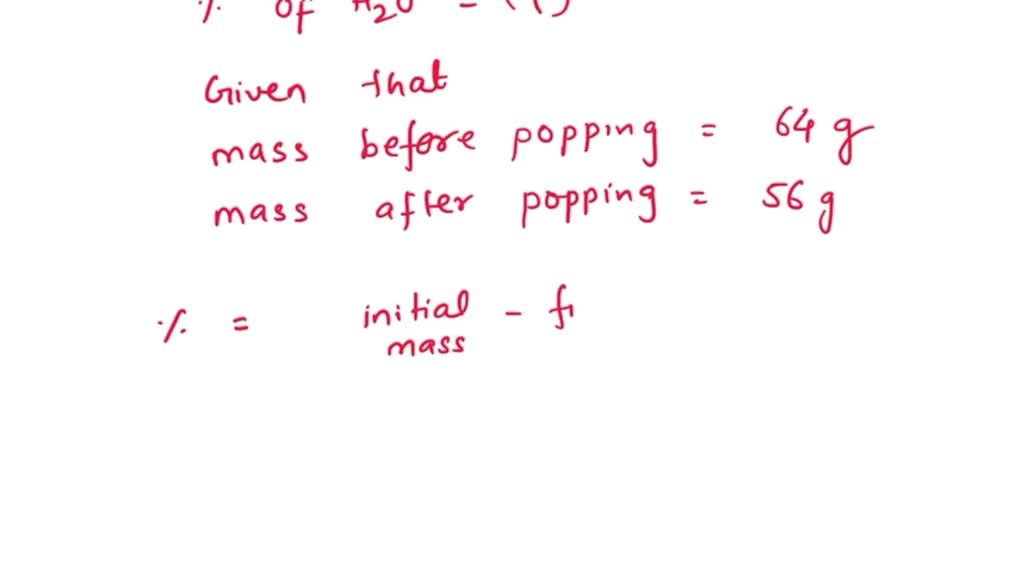 % of H2O = (?)
Given that
mass before popping = 64 g
mass after popping = 56 g
% = initial mass - fi